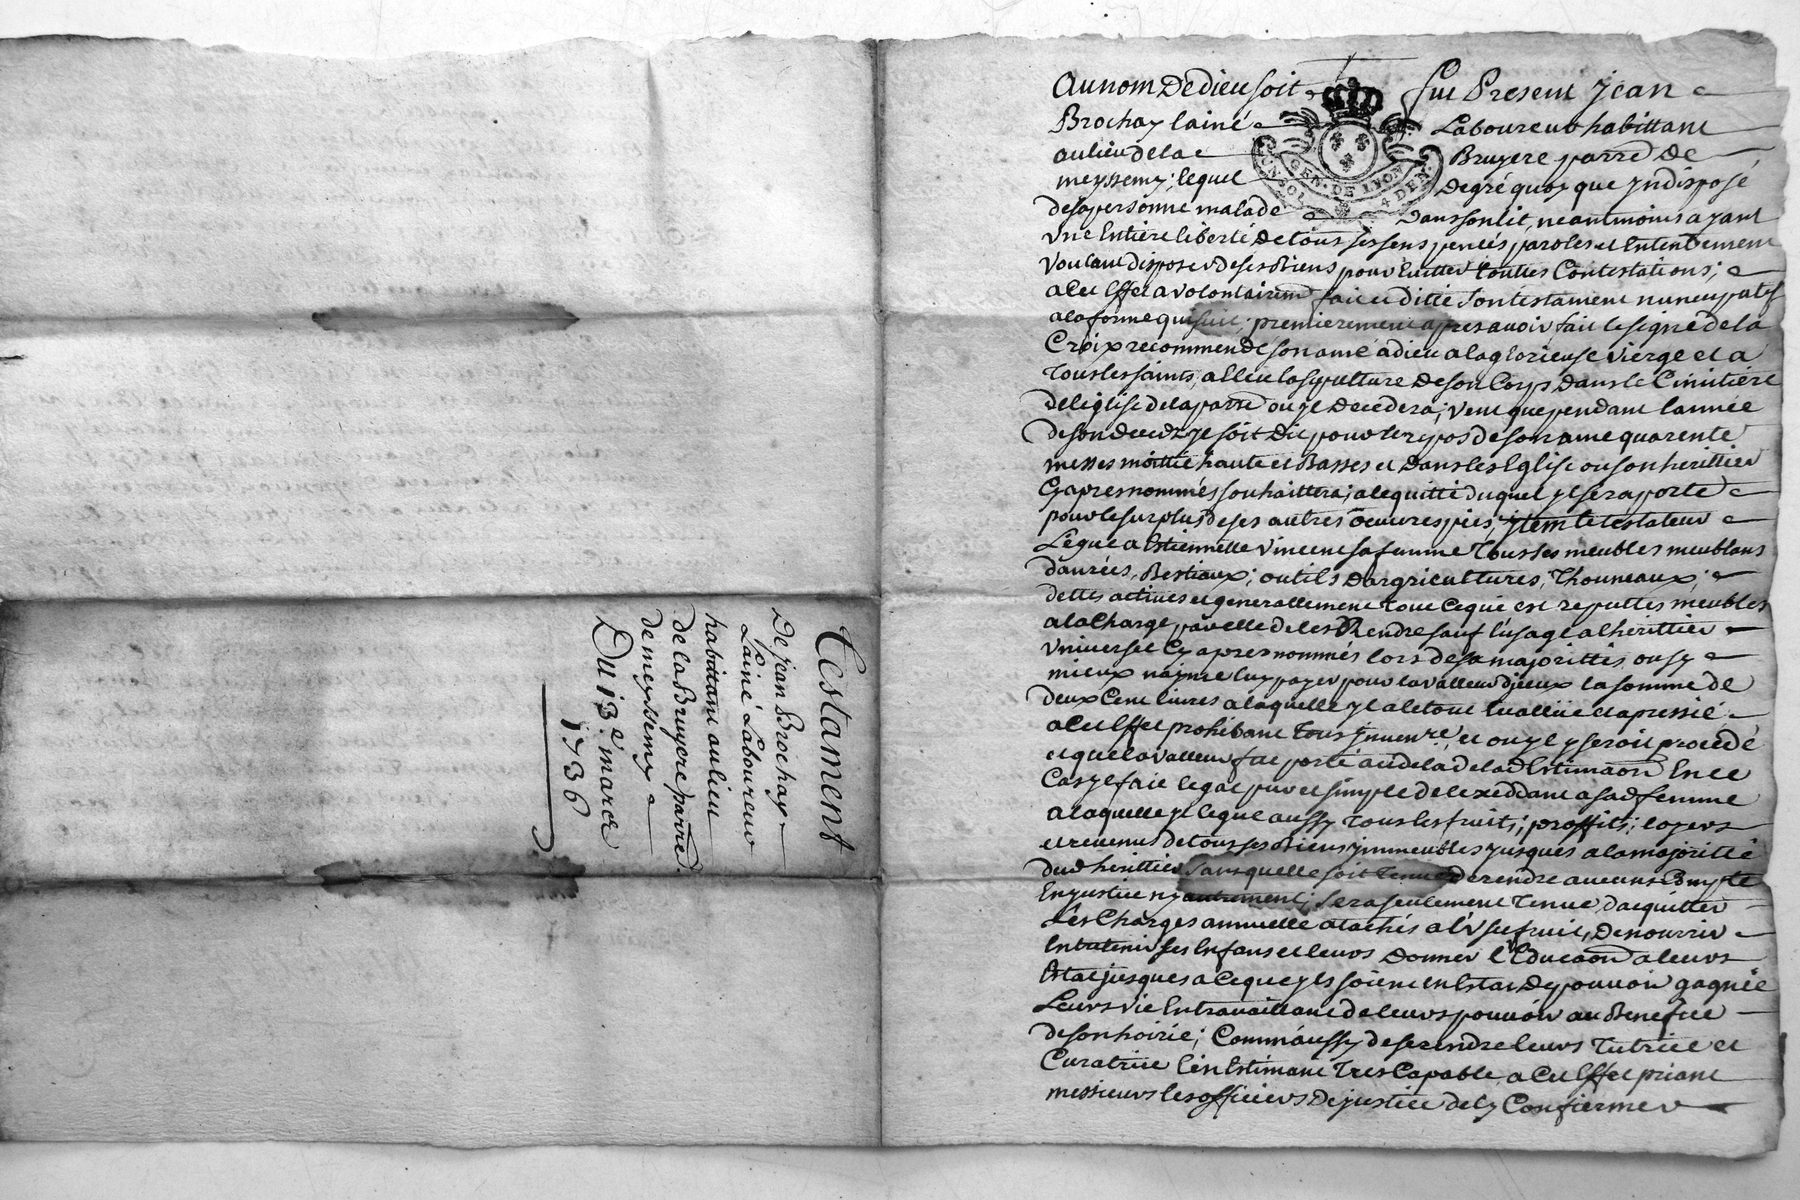 Testament
De jean Brochay
Lainé Laboureur
habittant au lieu
de la Bruyere parre
de meyssemy
Du 13e marcz
1736
Au nom De dieu soit fut Present jean
Brochay lainé Laboureur habittant
au lieu de la Bruyere parre De
meyssemy; lequel De gré quoy que yndisposé
de sa personne malade Dans son lit, neantmoins ayant
vne Entiere liberté De tous ses sens pencés paroles et Entendement
voulant disposer de ses Biens pour Euitter touttes Contestations;
a cet Effet a volontairemt fait et dicté son testament nuncupatif
a la forme qui suit; premierement apres auoir fait le signe de la
Croix recommende son ame a dieu a la glorieuse vierge et a
tous les saints, a lleu la sepulture De son Corps Dans le Cimitiere
de l'eglise de la parre ou yl Decedera; veut que pendant lannée
de son decedz yl soit Dit pour le repos de son ame quarente
messes moittié haute et Basses et Dans les Eglise ou son herittier
Cy apres nommés souhaittera; a lequitté duquel yl se raporte
pour le surplus de ses autres oeuures pies; ytem le testateur
Legue a Estiennette vincent sa femme Tous ses meubles meublans
danrées, Bestiaux; outils Dargricultures, Thonneaux;
dettes actiues et generallement tout Ceque est reputtes meubles
a la Charge par elle de les Rendre sauf l'usage a lherittier
vniuersel Cy apres nommés lors de sa majorittés, ou sy
mieux n'ayme luy payer pour la valleur diceux la somme de
deux Cent liures a laquelle yl a le tout Euallüé et apressié
a cet Effet prohibant tous ynuenre, et ou yl y seroit procedé
et que la valleur fut porté au dela de lad Estimaon En ce
Cas yl fait legat pur et simple de l'exeddant a sad femme
a laquelle yl legue aussy tous les fruits; proffits; loyers
et reuenus de tous ses Biens ymmeubles jusques a la majoritté
dud herittier sans quelle soit tenue de rendre aucuns Compte
En justice ny autrement; sera seulement tenue, dacquitter
Les Charges annuelle atachés a l'vsufruit, De nourrir
Entretenir ses Enfans et leurs Donner l'Educaon a leurs
Estat jusques a Ceque yls soient en Estat De pouuoir gagnée
Leurs vie En travaillant de leurs pouuoir au Benefice
de son hoirie; Comm'aussy de se rendre leurs Tutrice et
Curatrice l'en Estimant Tres Capable a Cet Effet priant
messieurs les officiers De justice de ly Confiermer
GEN. DE LYON
4 DEN.